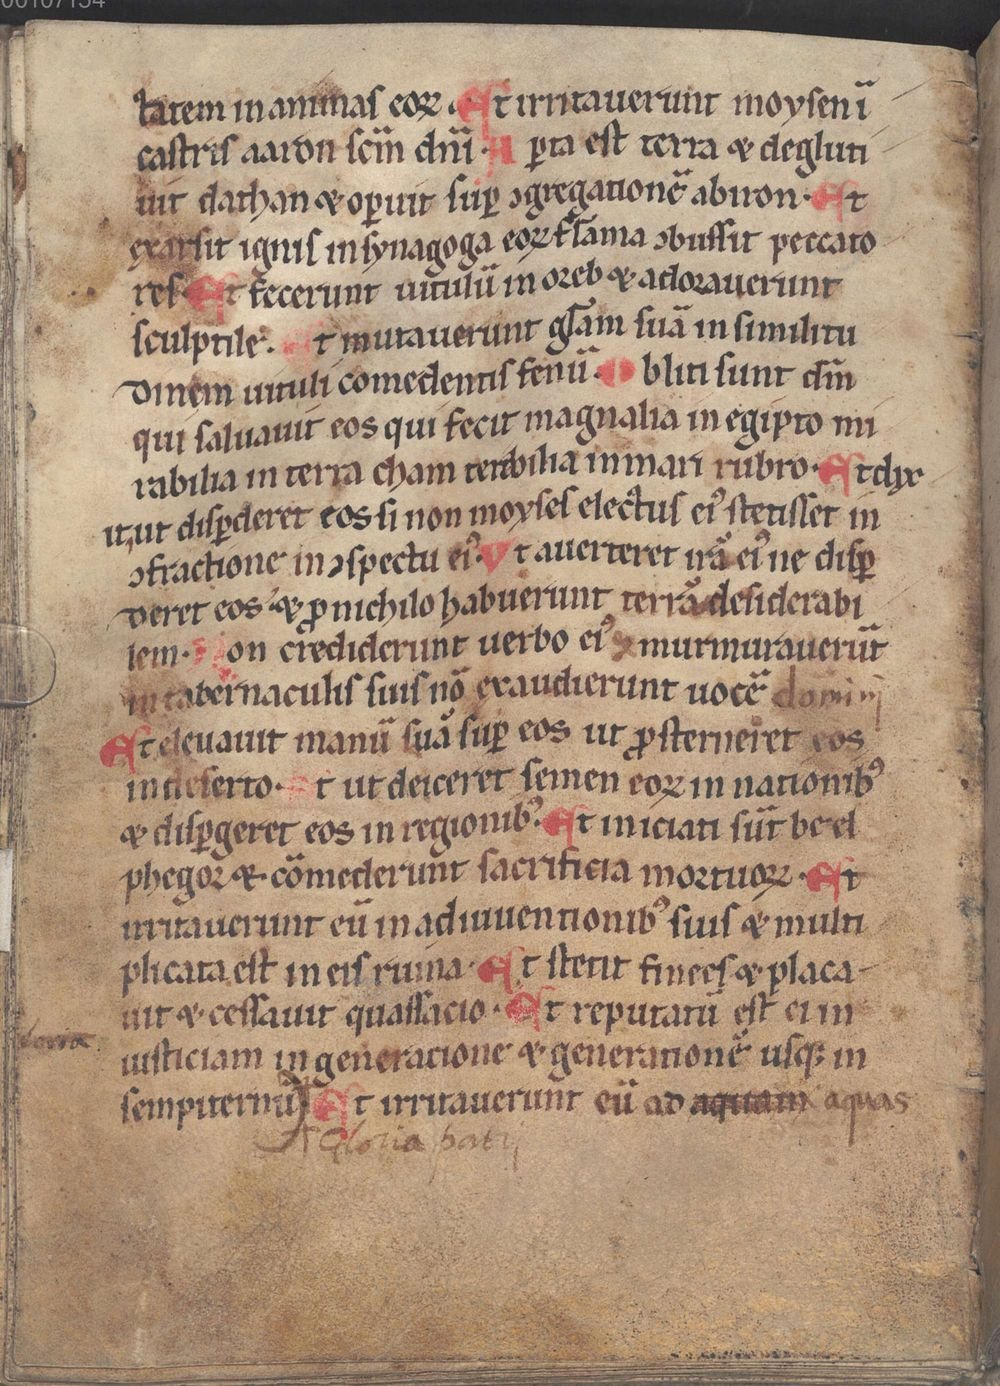 00107154
tatem in animas eoꝝ · Et irritauerunt moysen ī
castris aaron scm̄ dn̄i · Aꝑta est terra ⁊ degluti
uit dathan ⁊ oꝑuit suꝑ ꝯgregationē abiron · Et
exarsit ignis in synagoga eoꝝ flama ꝯbussit peccato
res · Et fecerunt uitulū in oreb ⁊ adorauerunt
sculptile · Et mutauerunt gl̄am suā in similitu
dinem uituli comedentis fenū · Obliti sunt dm̄
qui saluauit eos qui fecit magnalia in egipto mi
rabilia in terra cham terribilia in mari rubro · Et dix
it ut disꝑderet eos si non moyses electus eiꝰ stetisset in
ꝯfractione in ꝯspectu eiꝰ · Vt auerteret irā eiꝰ ne disꝑ
deret eos ⁊ ꝓ nichilo habuerunt terrā desiderabi
lem · Non crediderunt uerbo eiꝰ ⁊ murmurauerūt
in tabernaculis suis nō exaudierunt uocē domini
Et eleuauit manū suā suꝑ eos ut ꝓsterneret eos
in deserto · Et ut deiceret semen eoꝝ in nationibꝰ
⁊ disꝑgeret eos in regionibꝰ · Et iniciati sūt beel
phegor ⁊ cōmederunt sacrificia mortuoꝝ · Et
irritauerunt eū in adiuuentionibꝰ suis ⁊ multi
plicata est in eis ruina · Et stetit finees ⁊ placa-
uit ⁊ cessauit quassacio · Et reputatū est ei in
iusticiam in generacione ⁊ generationē usqꝫ in
sempiternū Et irritauerunt eū ad aquam aquas
Gloria patri